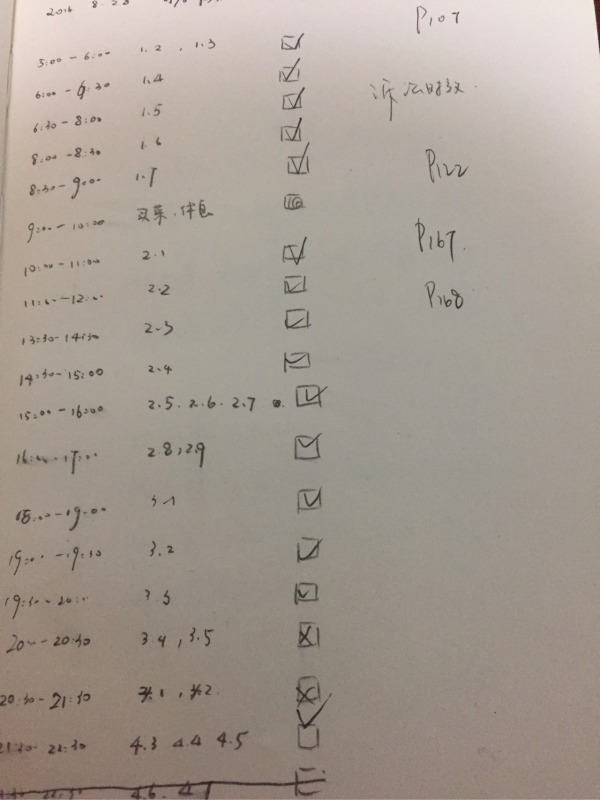 P107
5:00 - 6:00 1.2 , 1.3
6:00 - 6:30 1.4
诉 时效.
6:30 - 8:00 1.5
8:00 - 8:30 1.6
8:30 - 9:00 1.7
P122
9:00 - 10:00 买菜.休息
10:00 - 11:00 2.1
P167.
11:00 - 12:00 2.2
P168
13:30 - 14:30 2.3
14:30 - 15:00 2.4
15:00 - 16:00 2.5. 2.6. 2.7
16:00 - 17:00 2.8, 2.9
18:00 - 19:00 3.1
19:00 - 19:30 3.2
19:30 - 20:00 3.3
20:00 - 20:30 3.4 , 3.5
20:30 - 21:30 4.1 , 4.2
21:30 - 22:30 4.3 4.4 4.5
4.6. 4.7